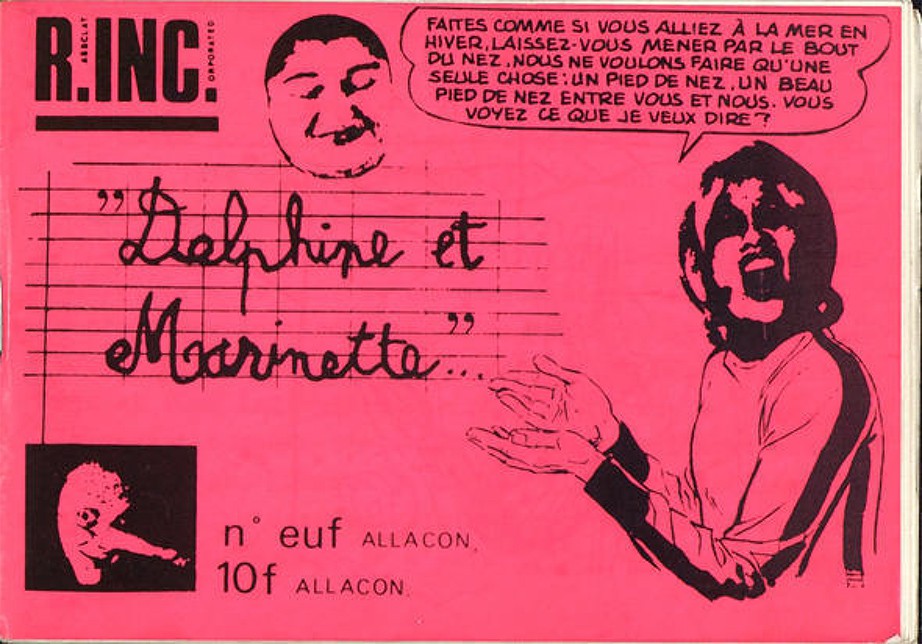 R.INC.
ABBCLAT
ORPORATED
FAITES COMME SI VOUS ALLIEZ À LA MER EN
HIVER, LAISSEZ-VOUS MENER PAR LE BOUT
DU NEZ, NOUS NE VOULONS FAIRE QU'UNE
SEULE CHOSE : UN PIED DE NEZ, UN BEAU
PIED DE NEZ ENTRE VOUS ET NOUS. VOUS
VOYEZ CE QUE JE VEUX DIRE ?
"Delphine et
Marinette"...
n° euf ALLACON,
10f ALLACON.